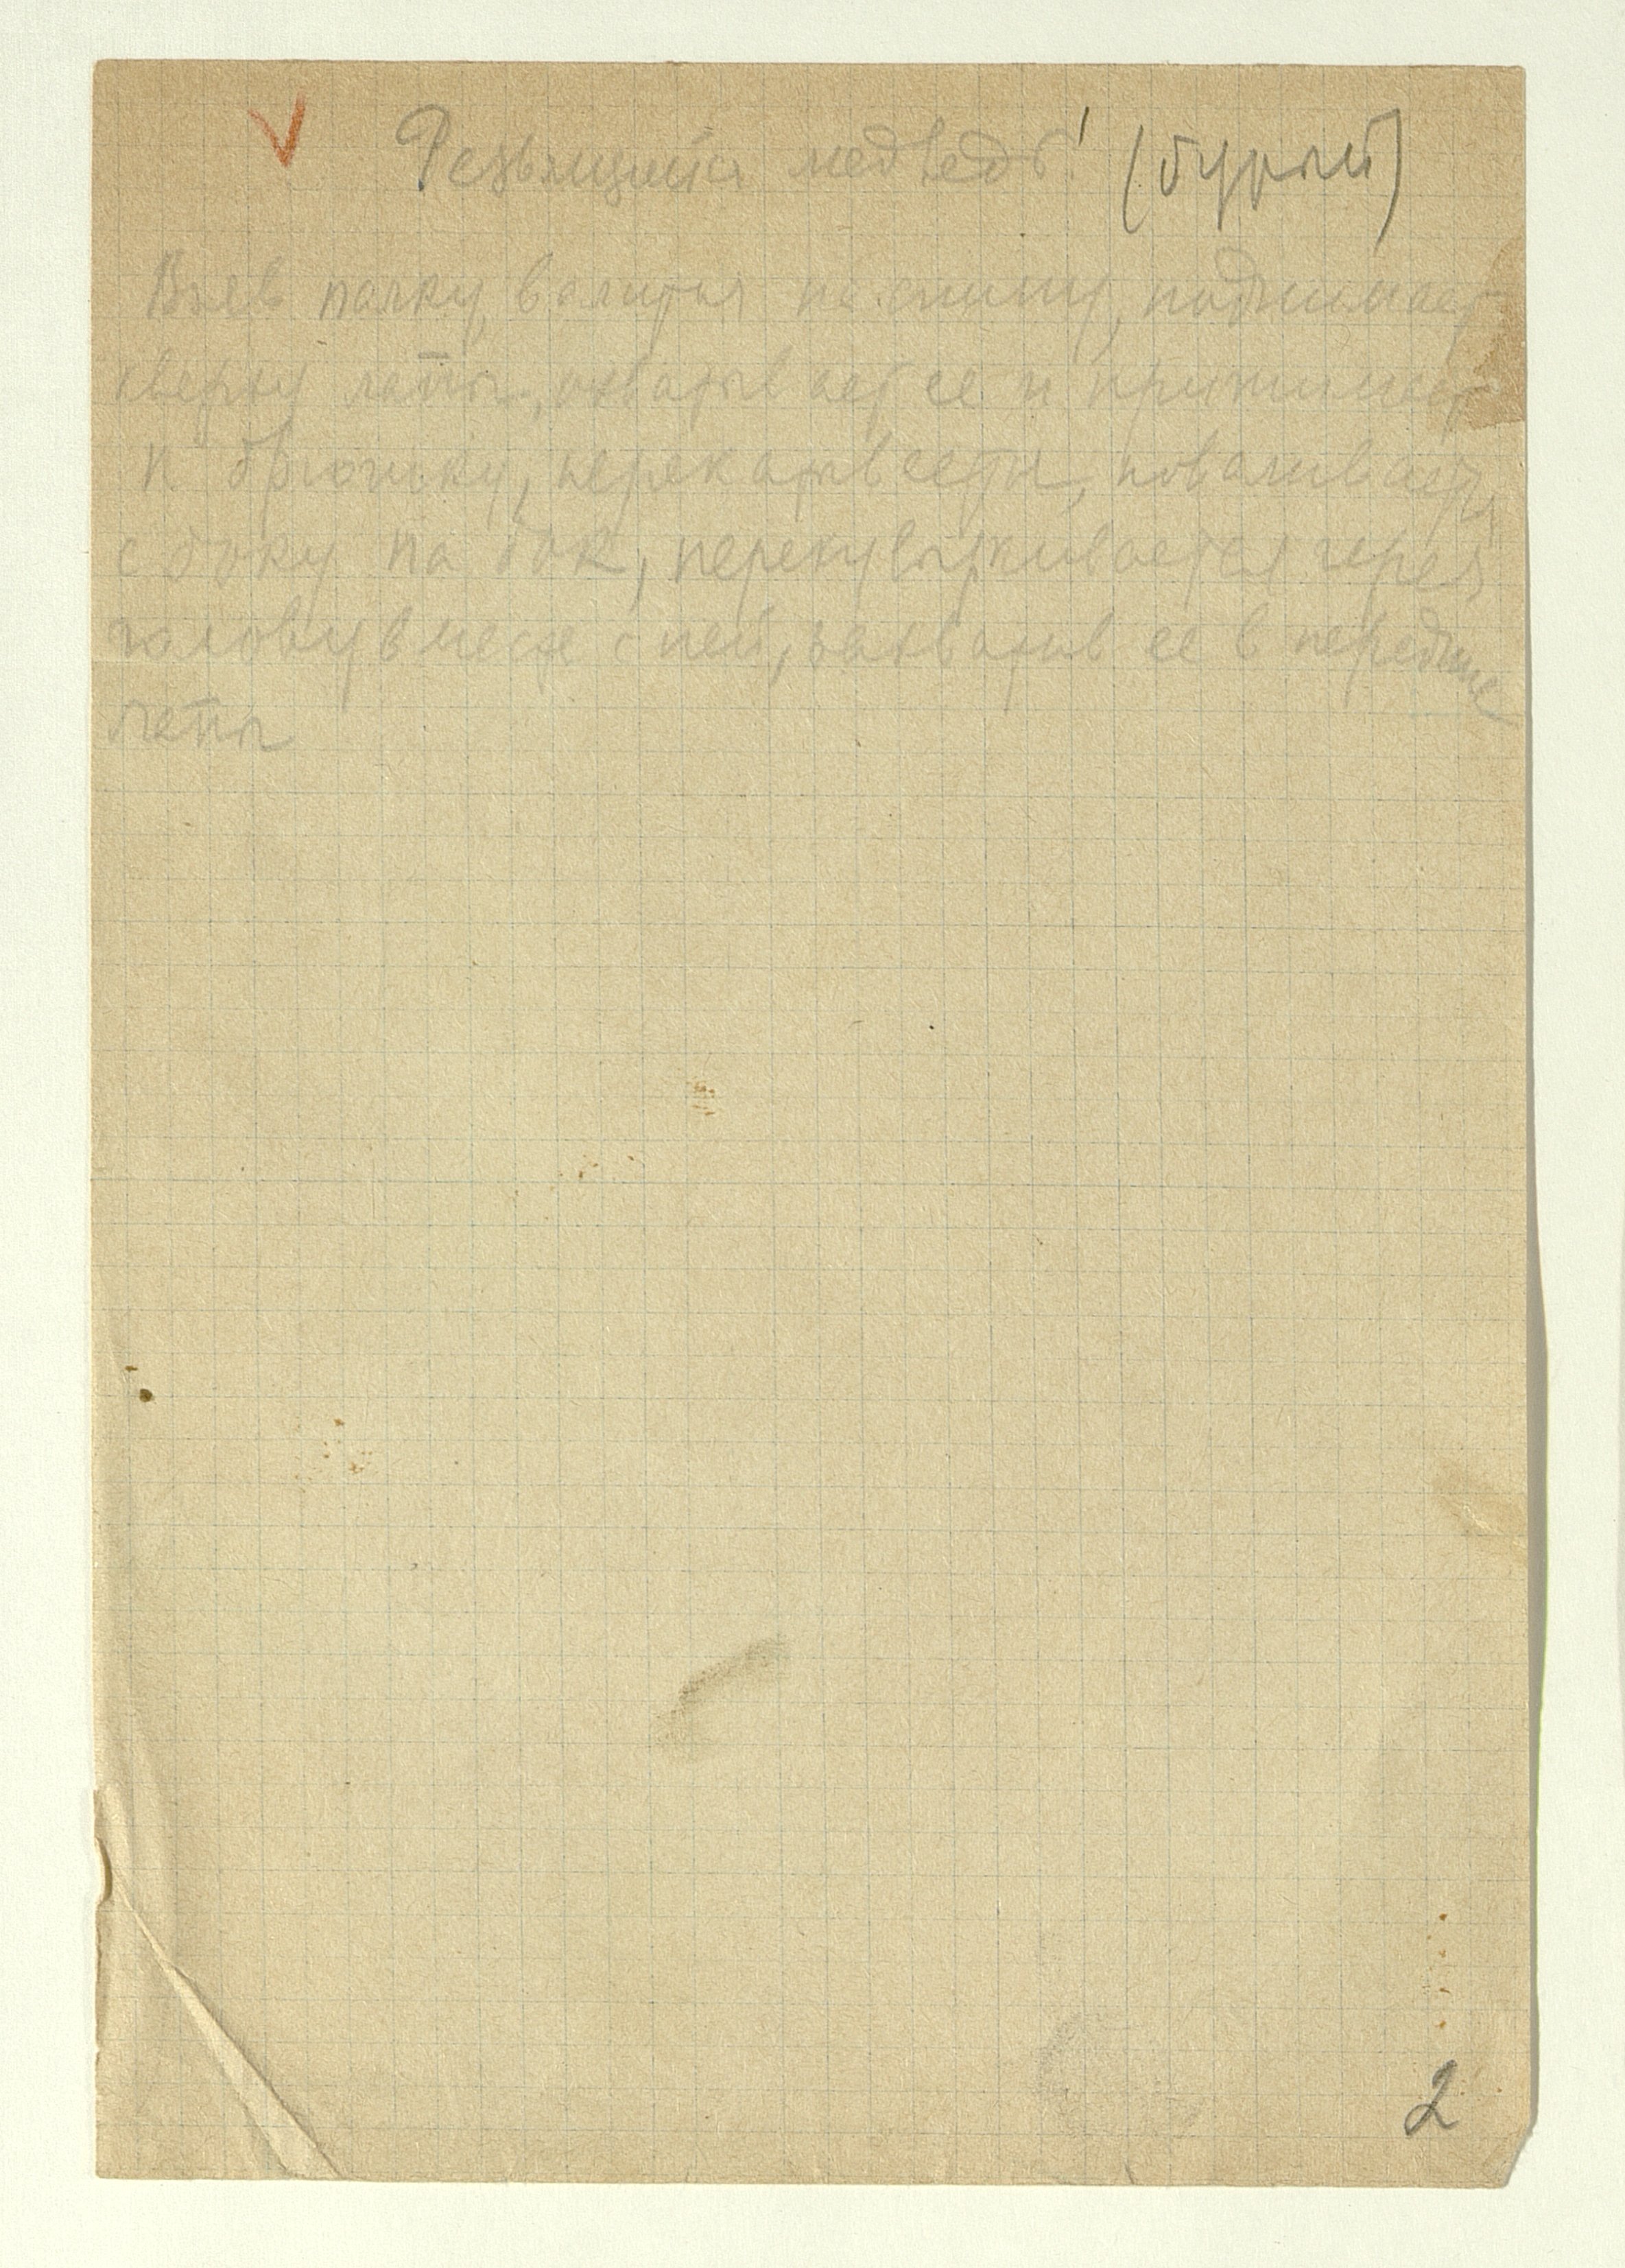 Резвящийся медведь! (бурый)
Взяв палку, валится на спину, поднимает
кверху лапы, охватывает ее и прижимает
к брюшку, перекатывается, поваливается
с боку на бок, перекувыркивается через
голову вместе с ней, захватив ее в передние
лапы
2